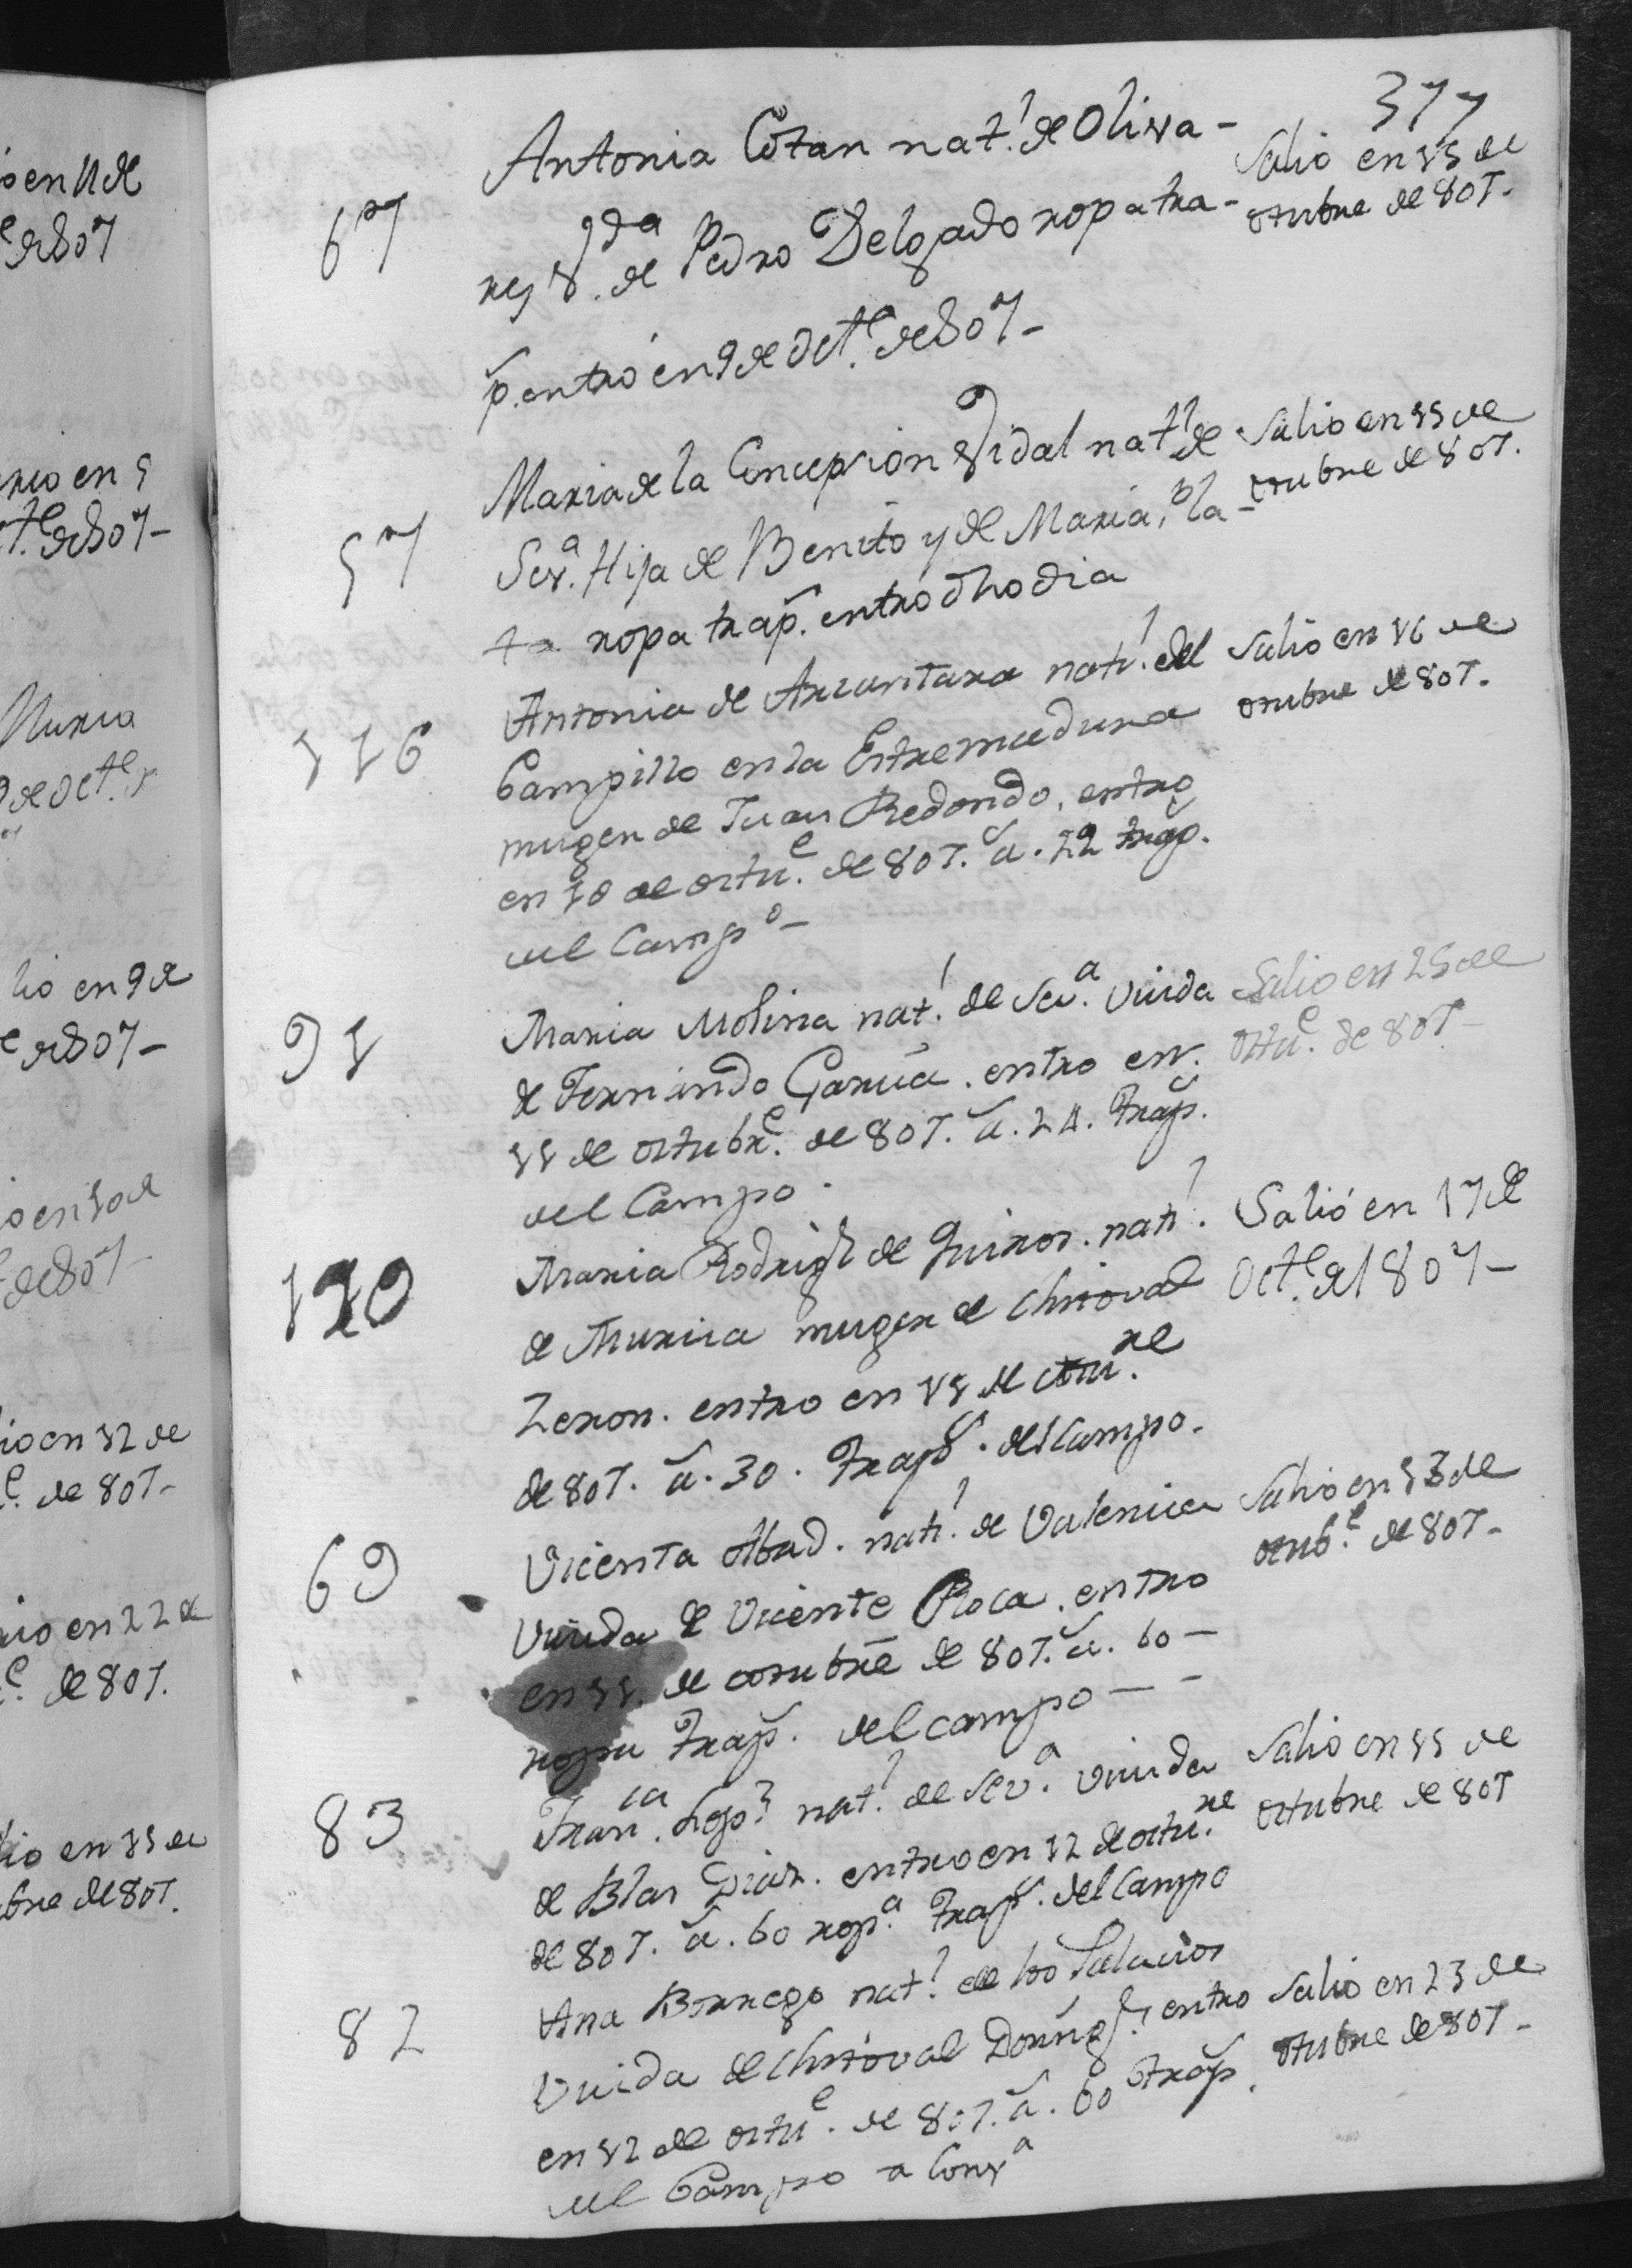 377
67
Antonia Cotan nat.l de Oliva-
res V.da de Pedro Delgado ropa tra-
p. entró en 9 de Oct.e de 807-
Salio en 15 de
octubre de 807.
57
Maria de la Concepcion Vidal nat.l de
Sev.a Hija de Benito y de Maria,
ropa trap. entró dho dia
Salio en 15 de
octubre de 807.
116
Antonia de nat.l del
Campillo en la Estremadura
muger de Juan Redondo, entro
en 10 de octu.e de 807. a. 22 trap.
del Camp.o-
Salio en 16 de
octubre de 807.
91
Maria Molina nat.l de Sev.a Viuda
de Fernando Garcia. entro en.
11 de octubr.e de 807. a. 24. trap.
del Campo.
Salio en 25 de
octu.e de 807-
110
Maria Rodrig.z de Quiros. nat.l
de Murcia muger de Christoval
Zeron. entro en 11 de octu.re
de 807. a. 30. trap.s del Campo.
Salió en 17 de
Oct.e de 1807-
69
Vicenta Abad. nat.l de Valencia
Viuda de Vicente Roca. entro
en 11. de octubre de 807. a. 60-
ropa trap. del campo--
Salio en 13 de
octub.e de 807-
83
Fran.ca Lop.z nat.l de Sev.a viuda
de Blas Diaz. entro en 12 de octu.re
de 807. a. 60 rop.a trap.s del Campo
Salio en 15 de
octubre de 807
82
Ana Borrego nat.l de los Palacios
Viuda de Christoval Doming.z entro
en 12 de octu.e de 807. a. 60 trap.
del Campo a Conv.a
Salio en 23 de
octubre de 807-